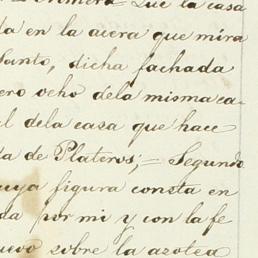 Primera Que la casa
da en la acera que mira
Santo, dicha fachada
ero ocho dela misma ca-
l dela casa que hace
da de Plateros;= Segundo
cuya figura consta en
da por mi y con la fe
uevo sobre la azotea